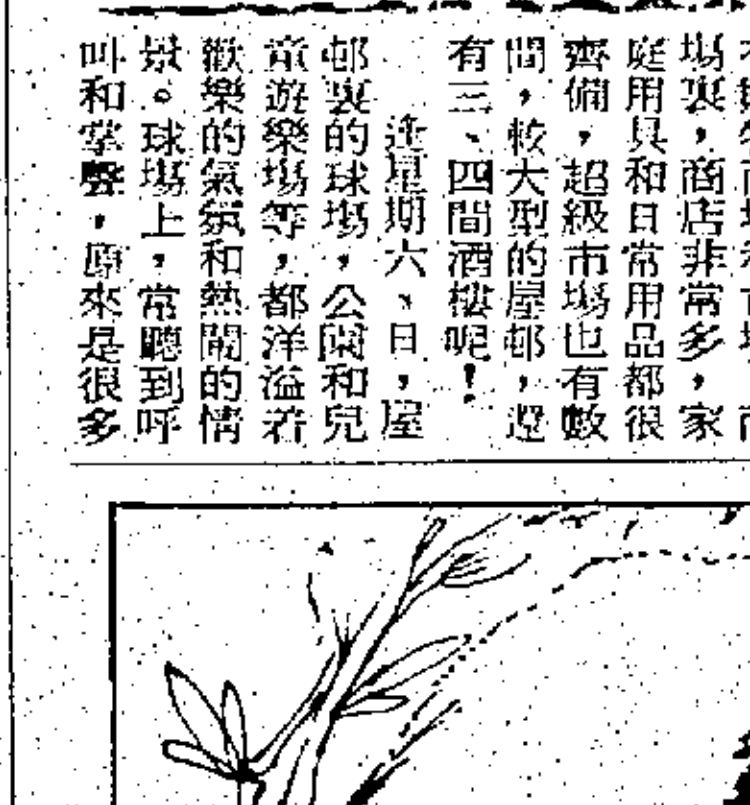 場裏，商店非常多，家
庭用具和日常用品都很
齊備，超級市場也有數
間，較大型的屋邨，還
有三、四間酒樓呢！
逢星期六、日，屋
邨裏的球場，公園和兒
童遊樂場等，都洋溢着
歡樂的氣氛和熱鬧的情
景。球場上，常聽到呼
叫和掌聲，原來是很多